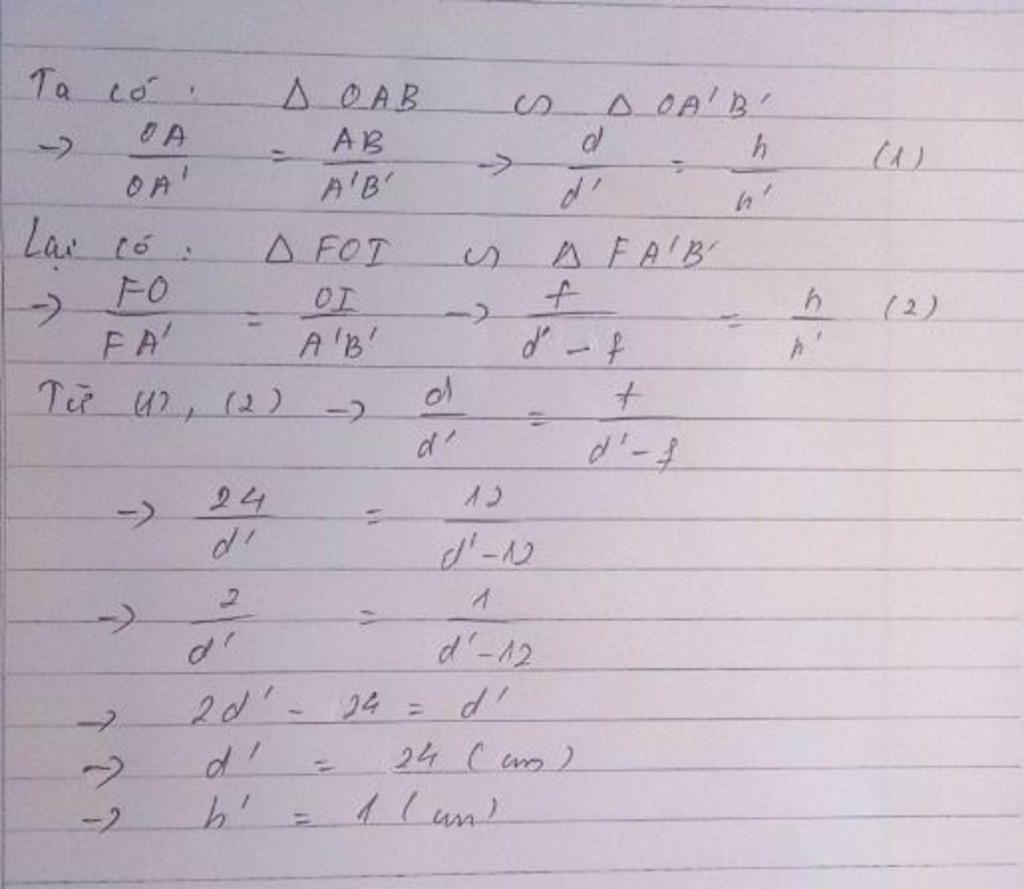 Ta có : Δ OAB ∽ Δ OA'B'
→ OA/OA' = AB/A'B' → d/d' = h/h' (1)
Lại có : Δ FOI ∽ Δ FA'B'
→ FO/FA' = OI/A'B' → f/(d' - f) = h/h' (2)
Từ (1), (2) → d/d' = f/(d' - f)
→ 24/d' = 12/(d' - 12)
→ 2/d' = 1/(d' - 12)
→ 2d' - 24 = d'
→ d' = 24 (cm)
→ h' = 1 (cm)